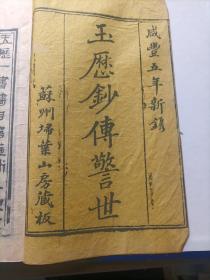 咸豐五年新鎸
玉歷鈔傳警世
蘇州掃葉山房藏板